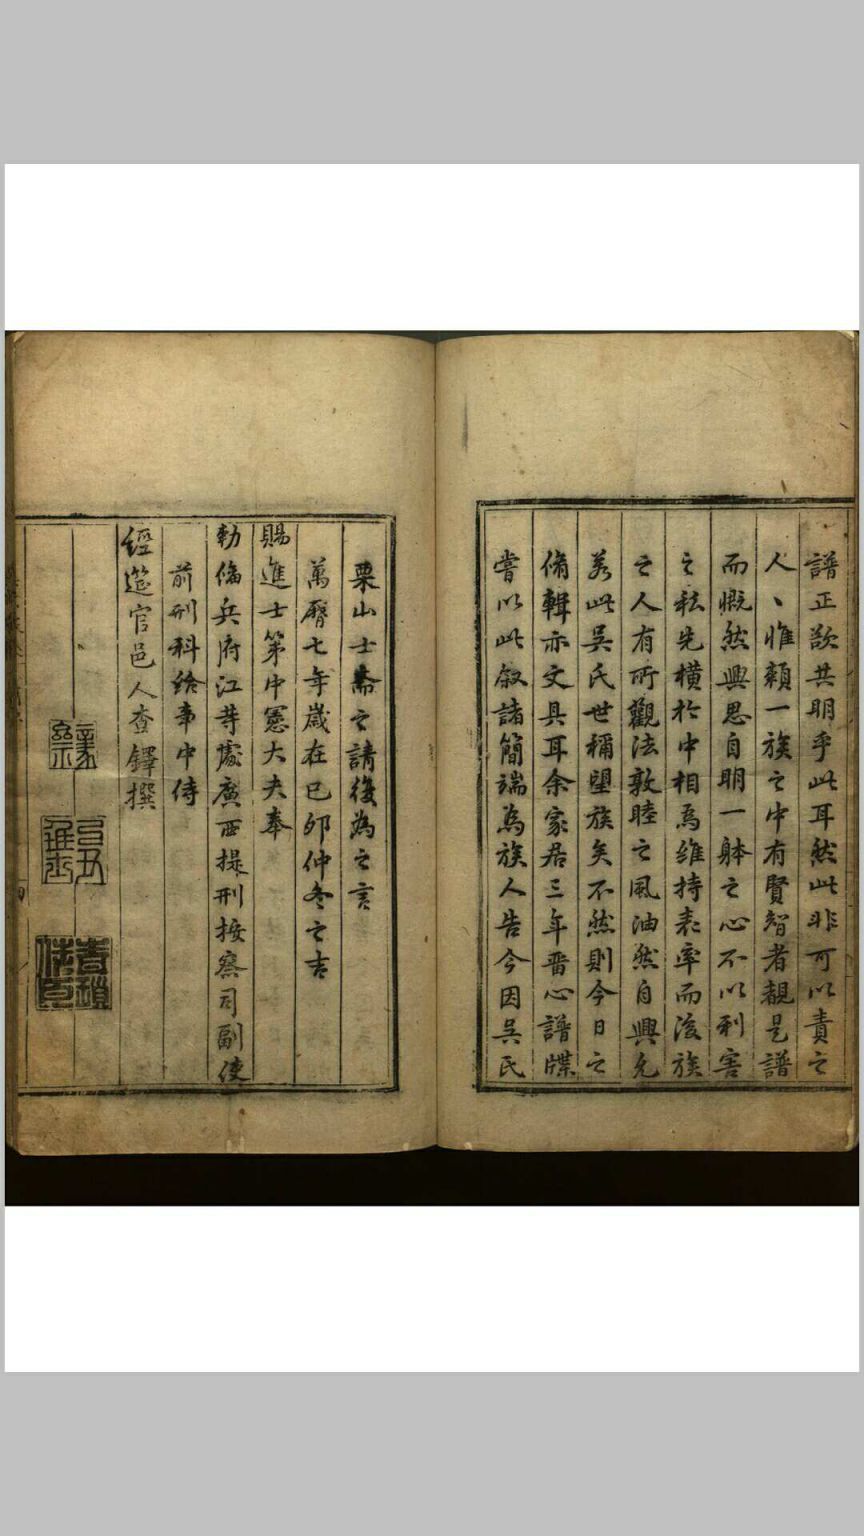 譜正欲共明乎此耳然此非可以責之
人丶惟頼一族之中有賢智者覩是譜
而慨然興思自明一躰之心不以利害
之私先横於中相爲維持表率而後族
之人有所觀法敦睦之風油然自興允
若此吳氏世稱望族矣不然則今日之
脩輯亦文具耳余家居三年晋心譜牒
嘗以此叙諸簡端爲族人告今因吳氏
栗山士斋之請復為之言
萬曆七年嵗在已夘仲冬之吉
賜進士第中憲大夫奉
勅俻兵府江等處廣西提刑按察司副使
前刑科給事中侍
經筵官邑人查鐸撰